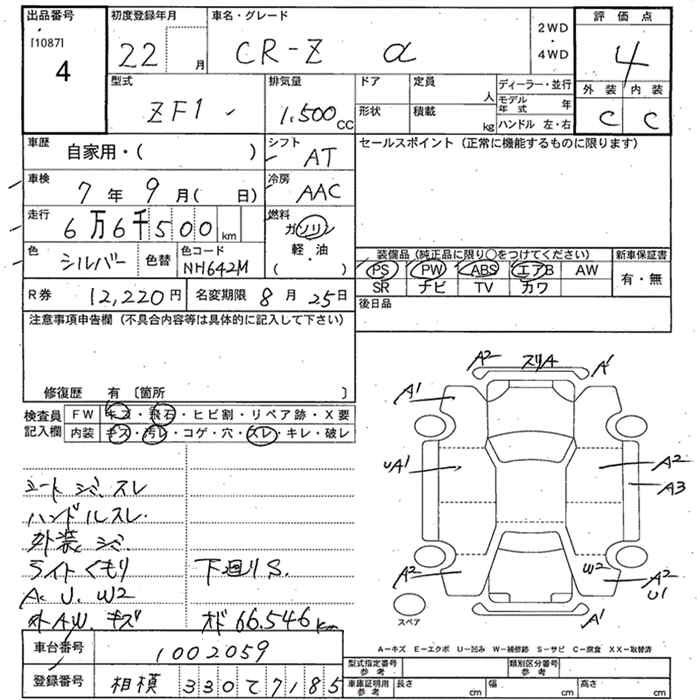 出品番号 初度登録年月 車名・グレード 評価点
[1087] 4
22 月 CR-Z α 2WD・4WD 4
型式 排気量 ドア 定員 人 ディーラー・並行 外装 内装
ZF1 1,500 CC 形状 積載 kg モデル年式 年 C C
ハンドル 左・右
車歴 自家用・( ) シフト AT セールスポイント (正常に機能するものに限ります)
車検 7年9月( 日) 冷房 AAC
走行 6万6千500 km 燃料 ガソリン・軽・油・( )
色 シルバー 色替 色コード NH642M
装備品 (純正品に限り○をつけてください) 新車保証書
PS PW ABS エアB AW 有・無
SR ナビ TV カワ
R券 12,220円 名変期限 8月25日 後日品
注意事項申告欄 (不具合内容等は具体的に記入して下さい)
修復歴 有 〔箇所 〕
検査員記入欄 FW キズ・飛石・ヒビ割・リペア跡・X要
内装 キズ・汚レ・コゲ・穴・スレ・キレ・破レ
シートシミ、スレ
ハンドルスレ.
外装シミ
ライトくもり 下廻りS.
A. U. W2
外AW.キズ オド66.546km
A2 スリA A1
A1
UA1 A2
A3
A2 W2 A2
U1
A1
スペア
A-キズ E-エクボ U-凹み W-補修跡 S-サビ C-腐食 XX-取替済
車台番号 1002059
登録番号 相模 330 て 7185
型式指定番号 参考 類別区分番号 参考
車庫証明用 参考 長さ cm 幅 cm 高さ cm